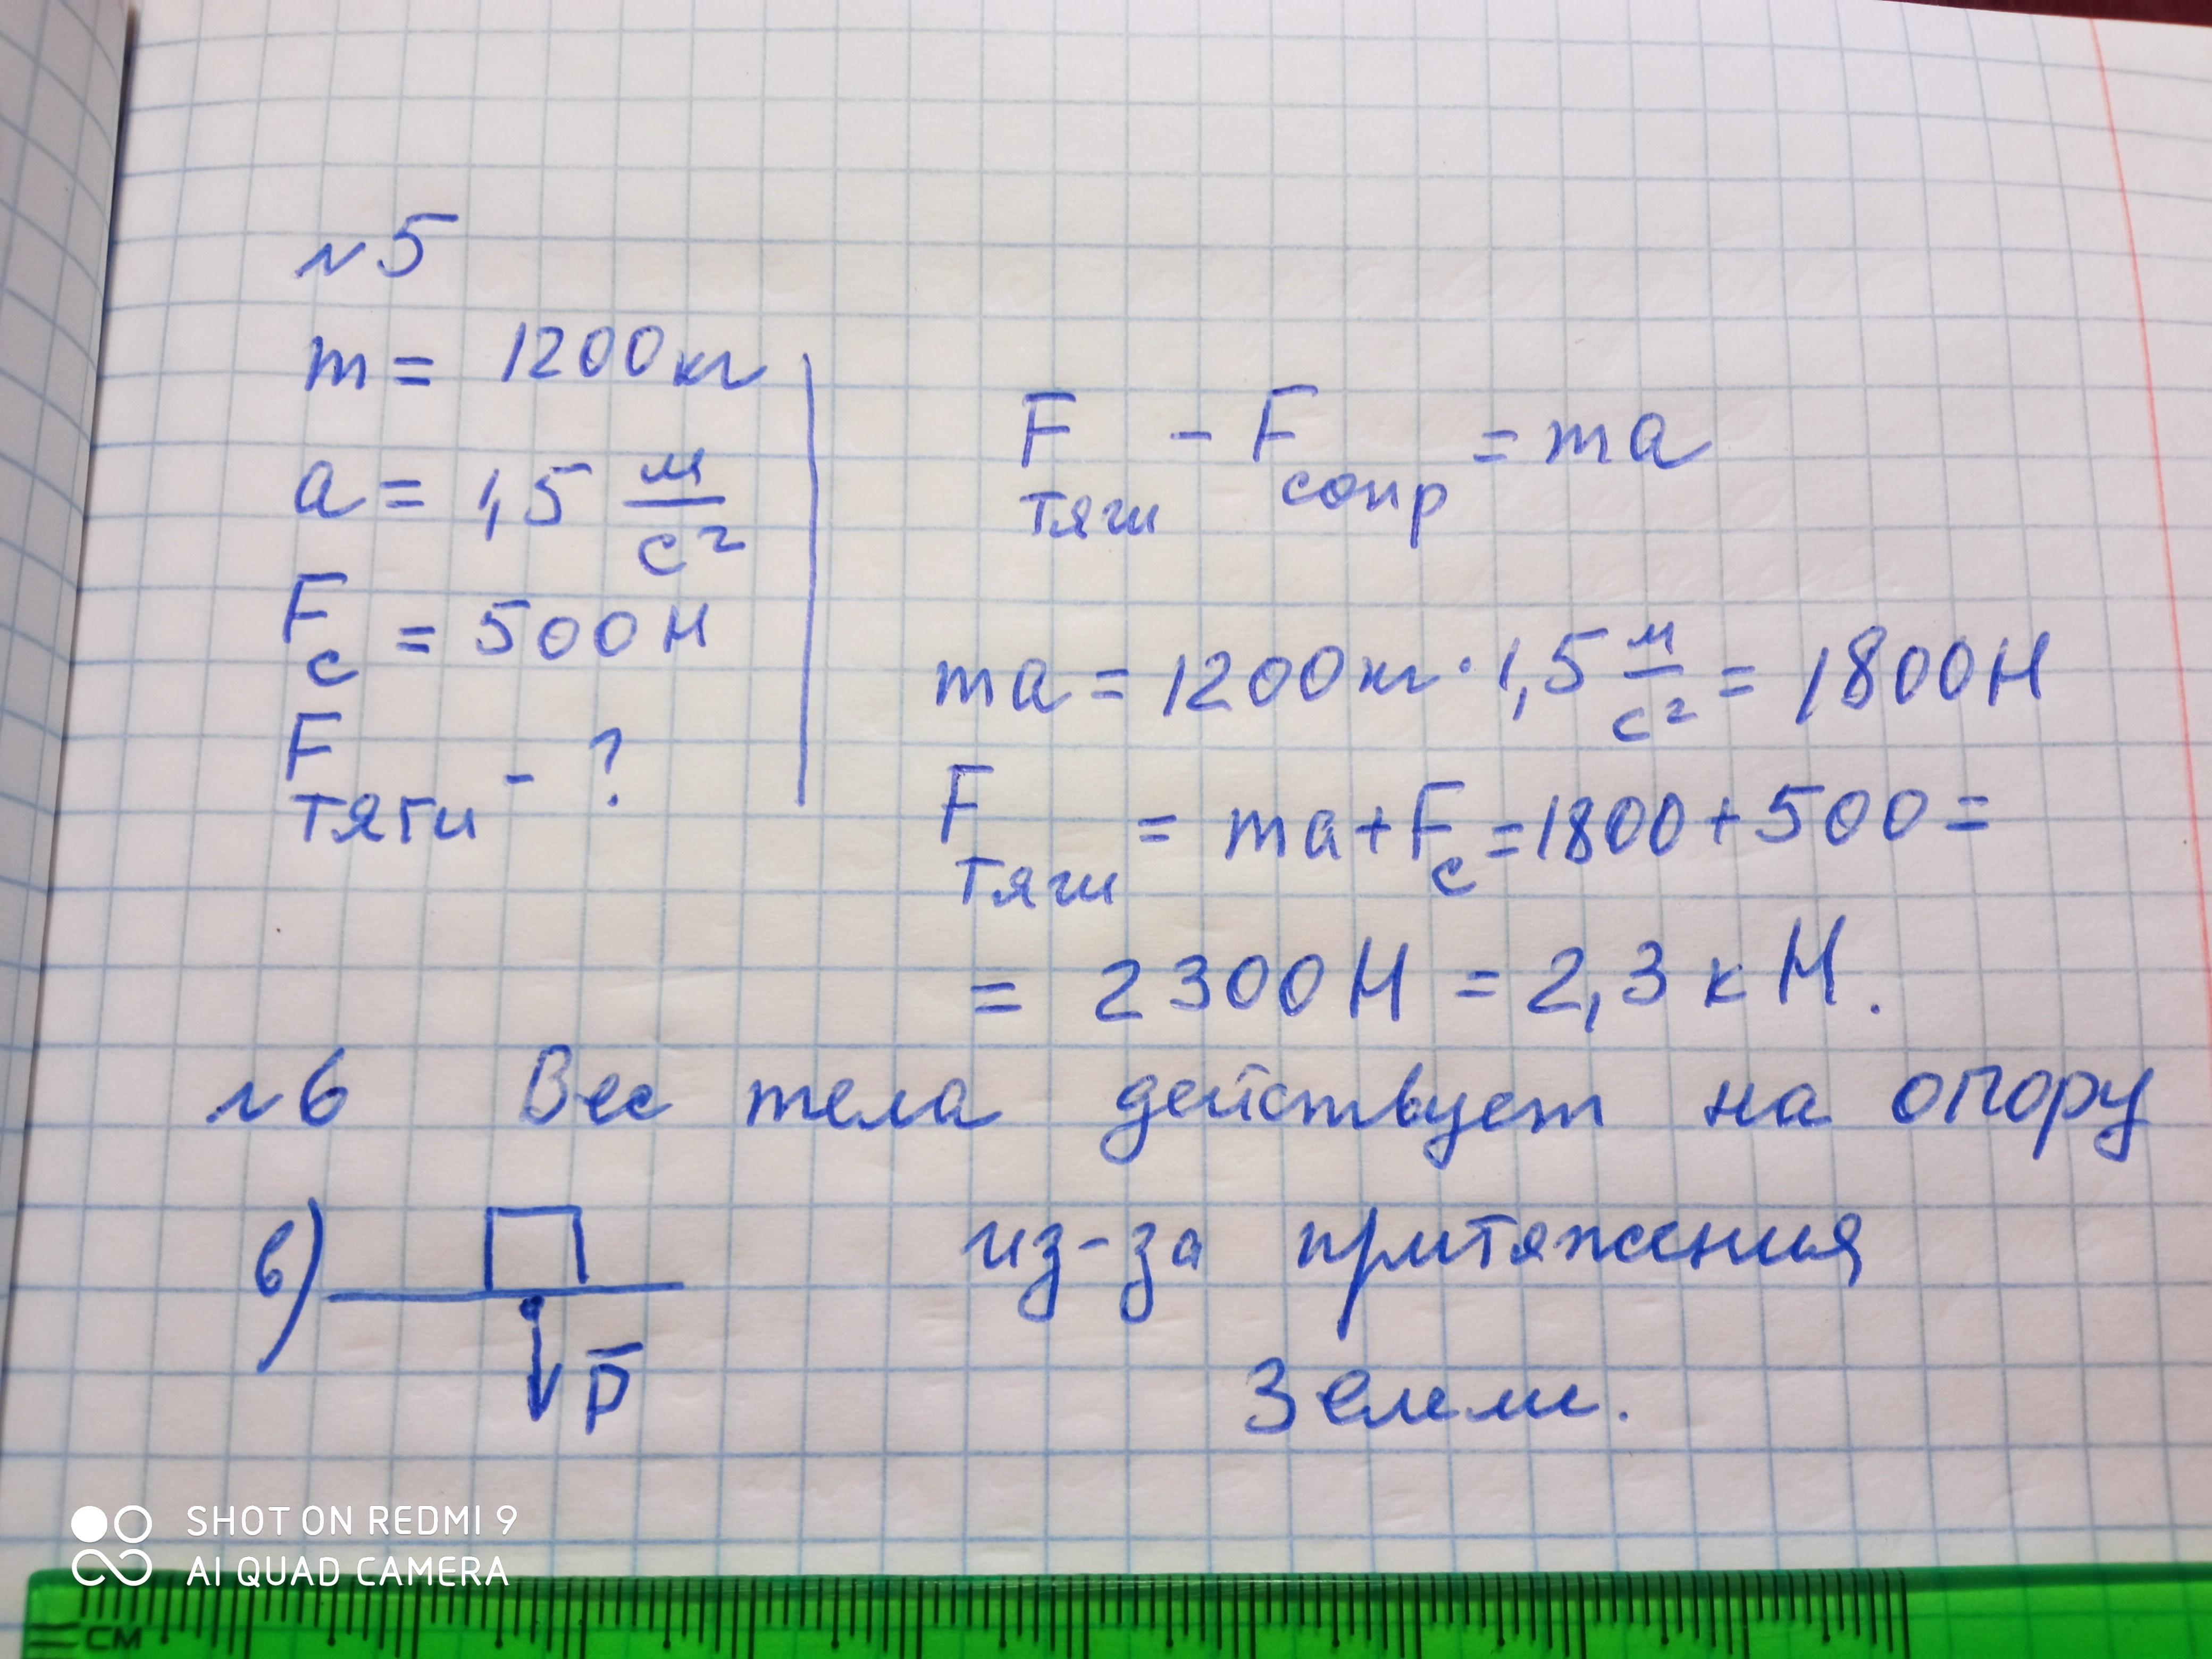 №5
m = 1200кг
a = 1,5 м/с²
Fс = 500Н
Fтяги - ?
Fтяги - Fсопр = ma
ma = 1200кг · 1,5 м/с² = 1800Н
Fтяги = ma + Fс = 1800 + 500 =
= 2300Н = 2,3 кН.
№6 Вес тела действует на опору
в) P̅ из-за притяжения
Земли.
SHOT ON REDMI 9
AI QUAD CAMERA
СМ